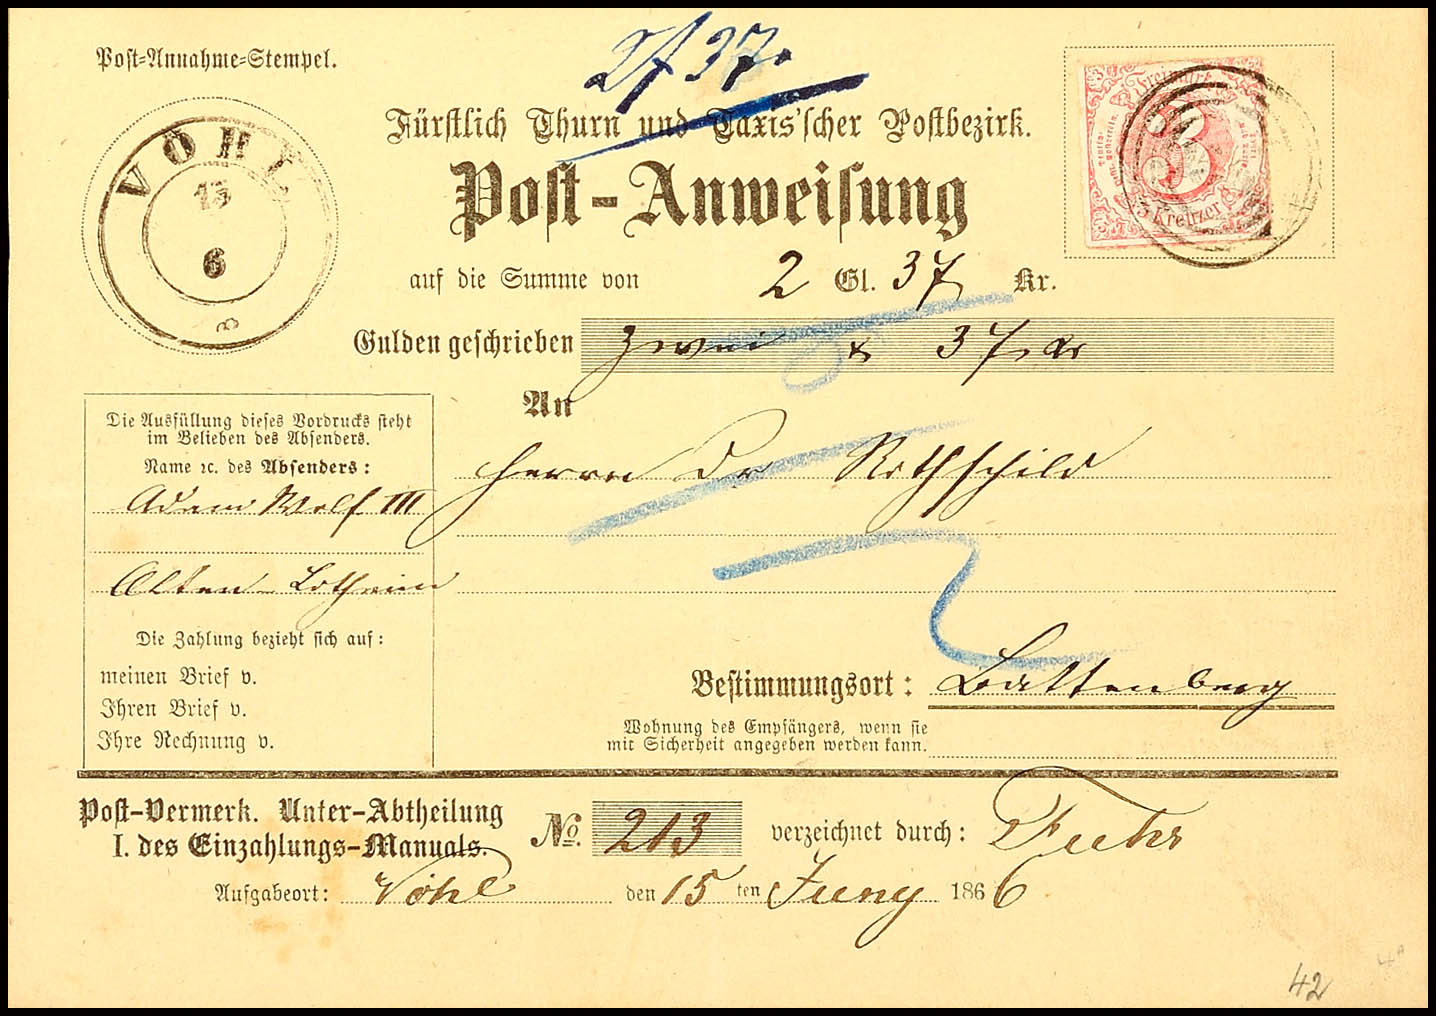 2 f 37.
Post-Annahme-Stempel.
Fürstlich Thurn und Taxis'scher Postbezirk.
Post-Anweisung
VÖHL
15
6
8
Freimarke
3
3 Kreuzer
auf die Summe von 2 Gl. 37 Kr.
Gulden geschrieben zwei & 37 Kr
An
Herrn Dr Rothschild
Die Ausfüllung dieses Vordrucks steht
im Belieben des Absenders.
Name ꝛc. des Absenders:
Adam Wolf III
Alten Lotheim
Die Zahlung bezieht sich auf:
meinen Brief v.
Ihren Brief v.
Ihre Rechnung v.
Bestimmungsort: Battenberg
Wohnung des Empfängers, wenn sie
mit Sicherheit angegeben werden kann.
Post-Vermerk. Unter-Abtheilung
I. des Einzahlungs-Manuals. No. 213 verzeichnet durch: Fuhr
Aufgabeort: Vöhl den 15 ten Juny 1866
42